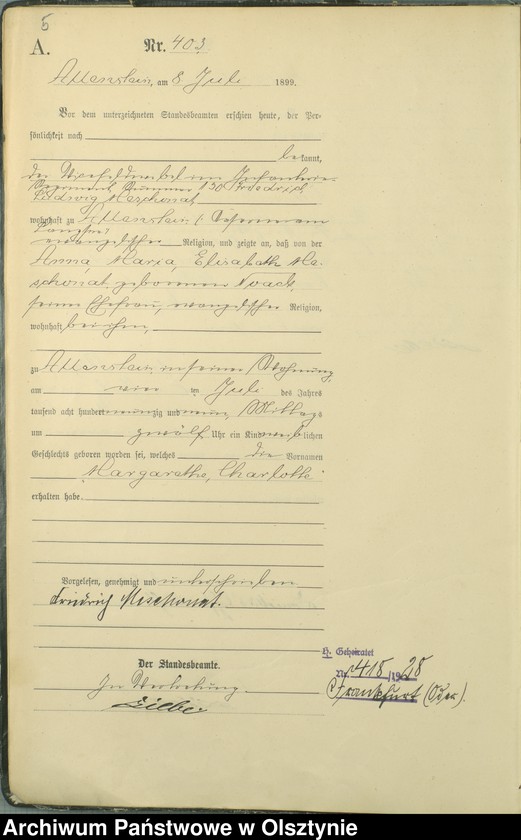 5
A.
Nr. 403
Allenstein, am 8. Juli 1899.
Vor dem unterzeichneten Standesbeamten erschien heute, der Per-
sönlichkeit nach
bekannt,
der Vizefeldwebel im Infanterie-
Regiment Nummer 150 Friedrich
Ludwig Maschonat
wohnhaft zu Allenstein
evangelischer Religion, und zeigte an, daß von der
Anna, Maria, Elisabeth Ma-
schonat geborenen Noack
seiner Ehefrau, evangelischer Religion,
wohnhaft bei ihm,
zu Allenstein in seiner Wohnung,
am vier ten Juli des Jahres
tausend acht hundert neunzig und neun, Mittags
um zwölf Uhr ein Kind weiblichen
Geschlechts geboren worden sei, welches die Vornamen
Margarethe, Charlotte
erhalten habe.
Vorgelesen, genehmigt und unterschrieben
Friedrich Maschonat.
Der Standesbeamte.
In Vertretung
H. Geheiratet
Nr. 418/1928
Frankfurt (Oder).
Archiwum Państwowe w Olsztynie